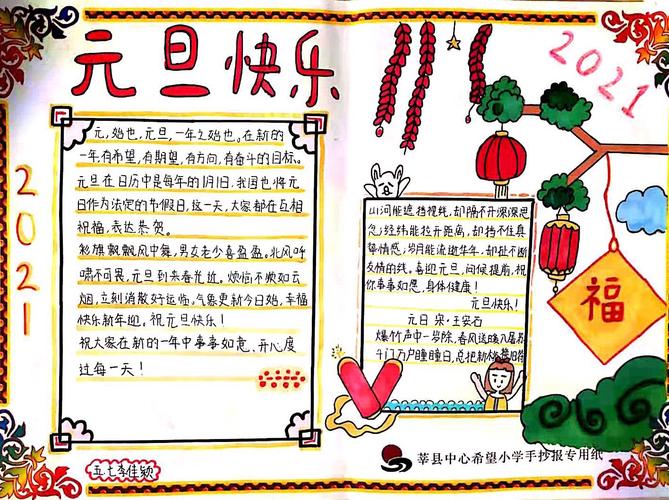 元旦快乐
2021
元,始也,元旦,一年之始也。在新的
一年有希望,有期望,有方向,有奋斗的目标。
元旦在日历中是每年的1月1日,我国也将元
旦作为法定的节假日,这一天,大家都在互相
祝福,表达恭贺。
彩旗飘飘风中舞,男女老少喜盈盈。北风呼
啸不可畏,元旦到来春光近。烦恼不顺如云
烟,立刻消散好运临。气象更新今日始,幸福
快乐新年迎。祝元旦快乐!
祝大家在新的一年中事事如意、开心度
过每一天!
2021
山河能遮挡视线,却隔不开深深思
念;经纬能拉开距离,却挡不住真
挚情感;岁月能流逝年华,却扯不断
友情的线。喜迎元旦,问候提前,祝
你事事如愿,身体健康!
元旦快乐!
元日 宋·王安石
爆竹声中一岁除,春风送暖入屠苏
千门万户曈曈日,总把新桃换旧符
福
莘县中心希望小学手抄报专用纸